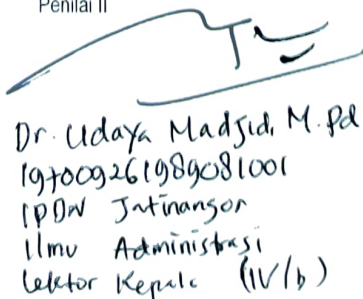 Penilai II
Dr. Udaya Madjid, M.Pd
197009261989081001
IPDN Jatinangor
Ilmu Administrasi
Lektor Kepala (IV/b)